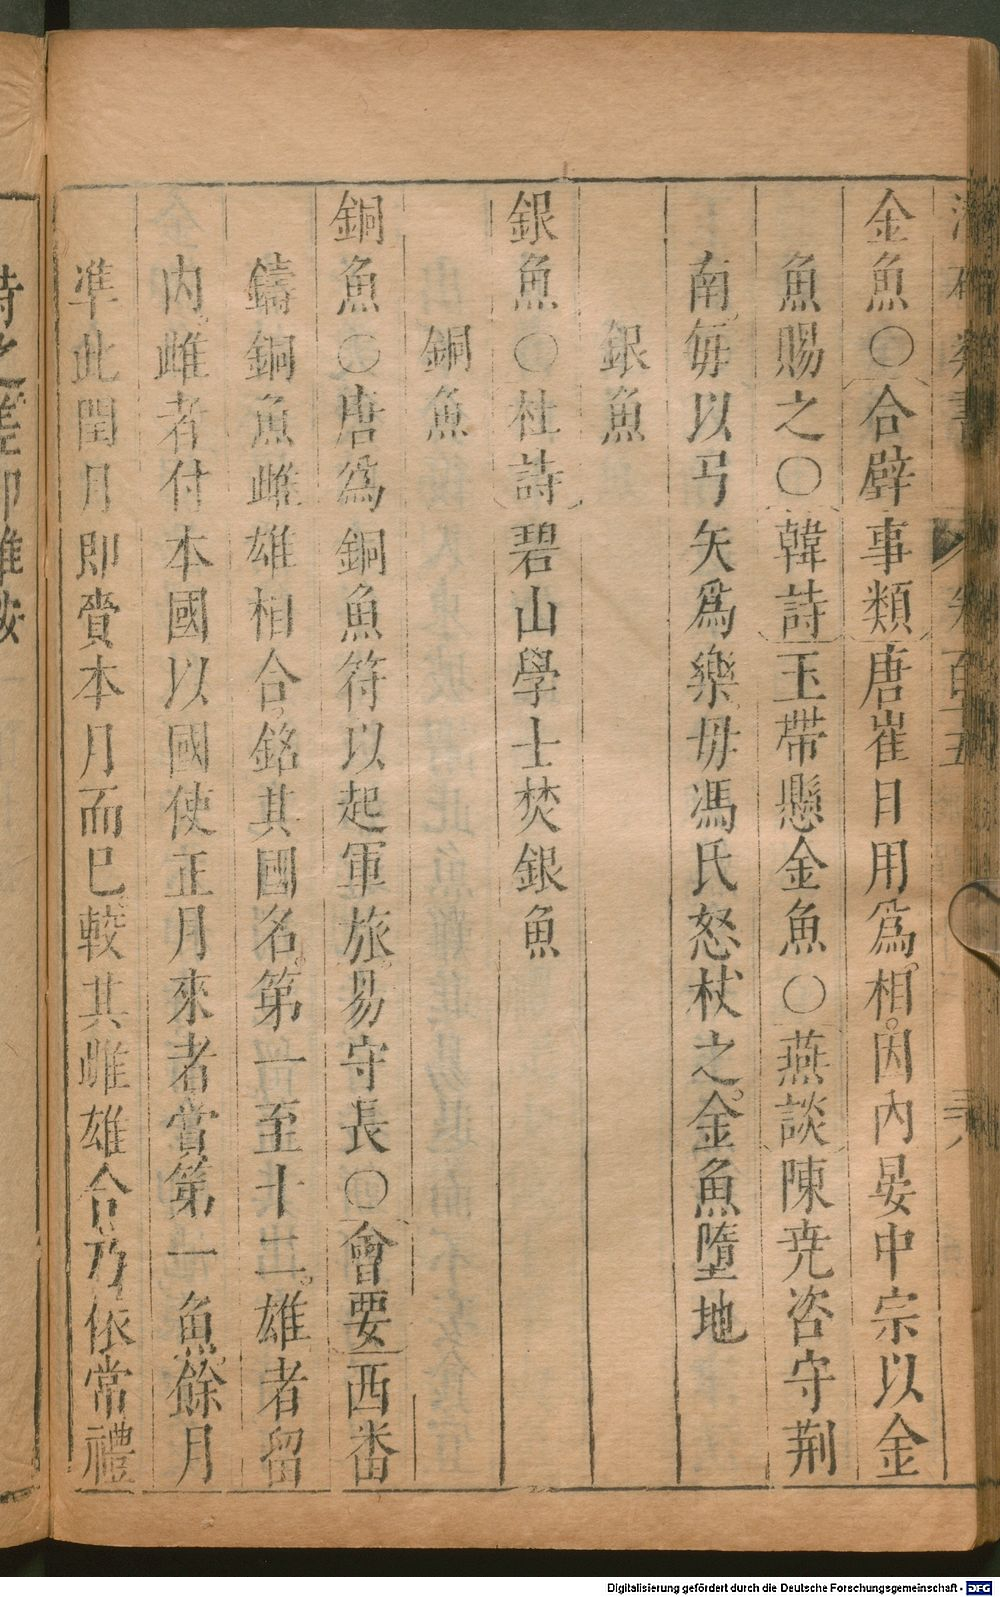 金魚○合璧事類唐崔日用爲相因內晏中宗以金
魚賜之○韓詩玉帶懸金魚○燕談陳尭咨守荆
南毎以弓矢爲樂毋馮氏怒杖之金魚墮地
銀魚
銀魚○杜詩碧山學士焚銀魚
銅魚
銅魚○唐爲銅魚符以起軍旅易守長○會要西番
鑄銅魚雌雄相合銘其國名第一至十二雄者留
内雌者付本國以國使正月來者賫第一魚餘月
凖此閏月即賫本月而巳較其雌雄合乃依常禮
Digitalisierung gefördert durch die Deutsche Forschungsgemeinschaft - DFG